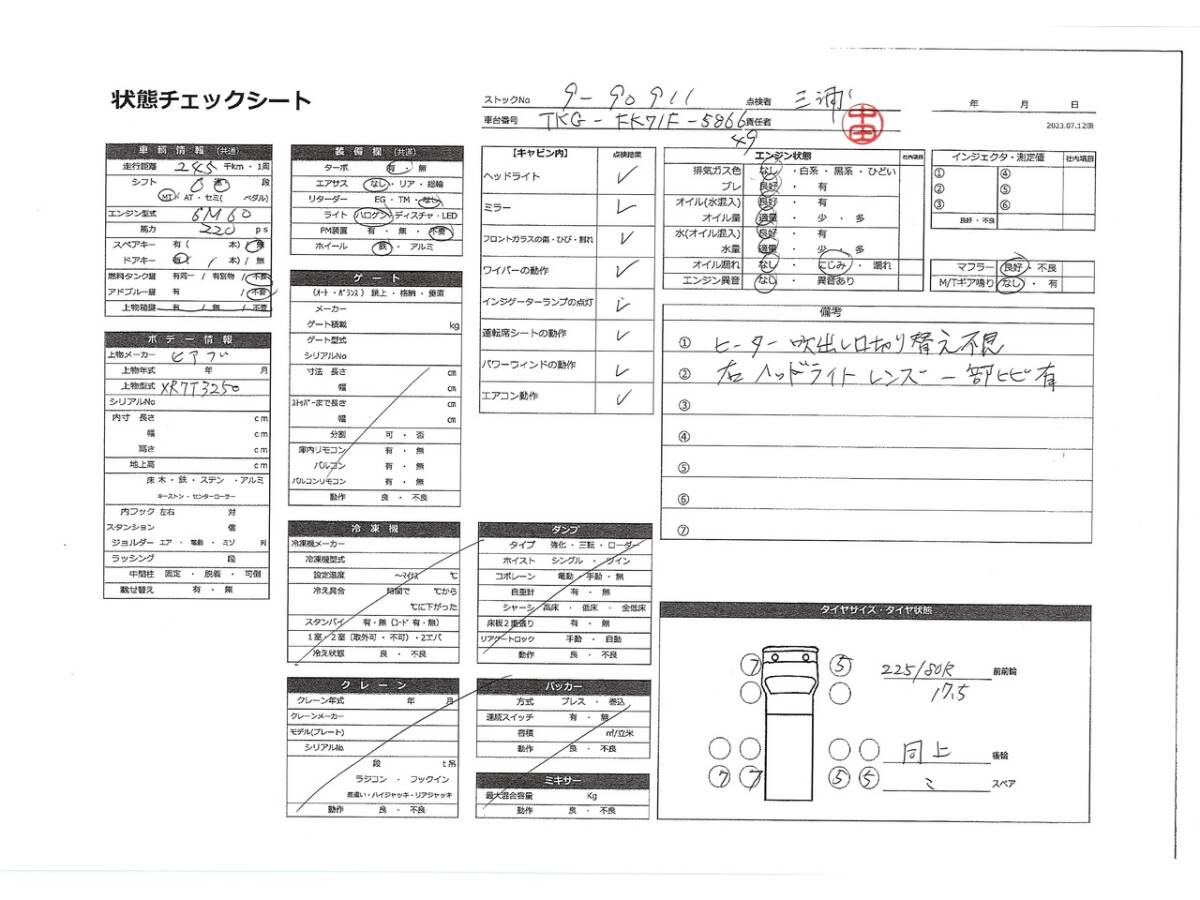 状態チェックシート
ストックNo 9-90911 点検者 三浦
車台番号 TKG-FK71F-5866 責任者
49
年 月 日
2023.07.12版
車輌情報 (共通)
走行距離 245 千km・1周
シフト 6 速 段
MT・AT・セミ( ペダル)
エンジン型式 6M60
馬力 220 ps
スペアキー 有( 本)/無
ドアキー 有( 本)/無
燃料タンク鍵 有同一/有別物/不要
アドブルー鍵 有 /不要
上物箱鍵 有/無/不要
ボデー情報
上物メーカー ヒアブ
上物年式 年 月
上物型式 XR7T3250
シリアルNo
内寸 長さ cm
幅 cm
高さ cm
地上高 cm
床 木・鉄・ステン・アルミ
キーストン・センターローラー
内フック 左右 対
スタンション 個
ジョルダー エア・電動・ミゾ 列
ラッシング 段
中間柱 固定・脱着・可倒
載せ替え 有・無
装備欄 (共通)
ターボ 有・無
エアサス なし・リア・総輪
リターダー EG・TM・なし
ライト ハロゲン・ディスチャ・LED
PM装置 有・無・不要
ホイール 鉄・アルミ
ゲート
(オート・バランス) 跳上・格納・垂直
メーカー
ゲート積載 kg
ゲート型式
シリアルNo
寸法 長さ cm
幅 cm
ストッパーまで長さ cm
幅 cm
分割 可・否
庫内リモコン 有・無
バルコン 有・無
バルコンリモコン 有・無
動作 良・不良
冷凍機
冷凍機メーカー
冷凍機型式
設定温度 ～マイナス ℃
冷え具合 時間で ℃から
℃に下がった
スタンバイ 有・無 (コード 有・無)
1室・2室 (取外可・不可)・2エバ
冷え状態 良・不良
クレーン
クレーン年式 年 月
クレーンメーカー
モデル(プレート)
シリアルNo.
段 t吊
ラジコン・フックイン
差違い・ハイジャッキ・リアジャッキ
動作 良・不良
【キャビン内】 点検結果
ヘッドライト ✓
ミラー ✓
フロントガラスの傷・ひび・割れ ✓
ワイパーの動作 ✓
インジゲーターランプの点灯 ✓
運転席シートの動作 ✓
パワーウィンドの動作 ✓
エアコン動作 ✓
ダンプ
タイプ 強化・三転・ローダー
ホイスト シングル・ツイン
コボレーン 電動・手動・無
自重計 有・無
シャーシ 高床・低床・全低床
床板2重張り 有・無
リアゲートロック 手動・自動
動作 良・不良
パッカー
方式 プレス・巻込
連続スイッチ 有・無
容積 ㎥/立米
動作 良・不良
ミキサー
最大混合容量 Kg
動作 良・不良
エンジン状態 社内項目
排気ガス色 なし・白系・黒系・ひどい
ブレ 良好・有
オイル(水混入) 良好・有
オイル量 適量・少・多
水(オイル混入) 良好・有
水量 適量・少・多
オイル漏れ なし・にじみ・漏れ
エンジン異音 なし・異音あり
インジェクタ・測定値 社内項目
① ④
② ⑤
③ ⑥
良好・不良
マフラー 良好・不良
M/Tギア鳴り なし・有
備考
① ヒーター吹出し口切り替え不良
② 右ヘッドライトレンズ一部ヒビ有
③
④
⑤
⑥
⑦
タイヤサイズ・タイヤ状態
7 5 225/80R 前前輪
17.5
同上 後輪
7 7 5 5 ミ スペア